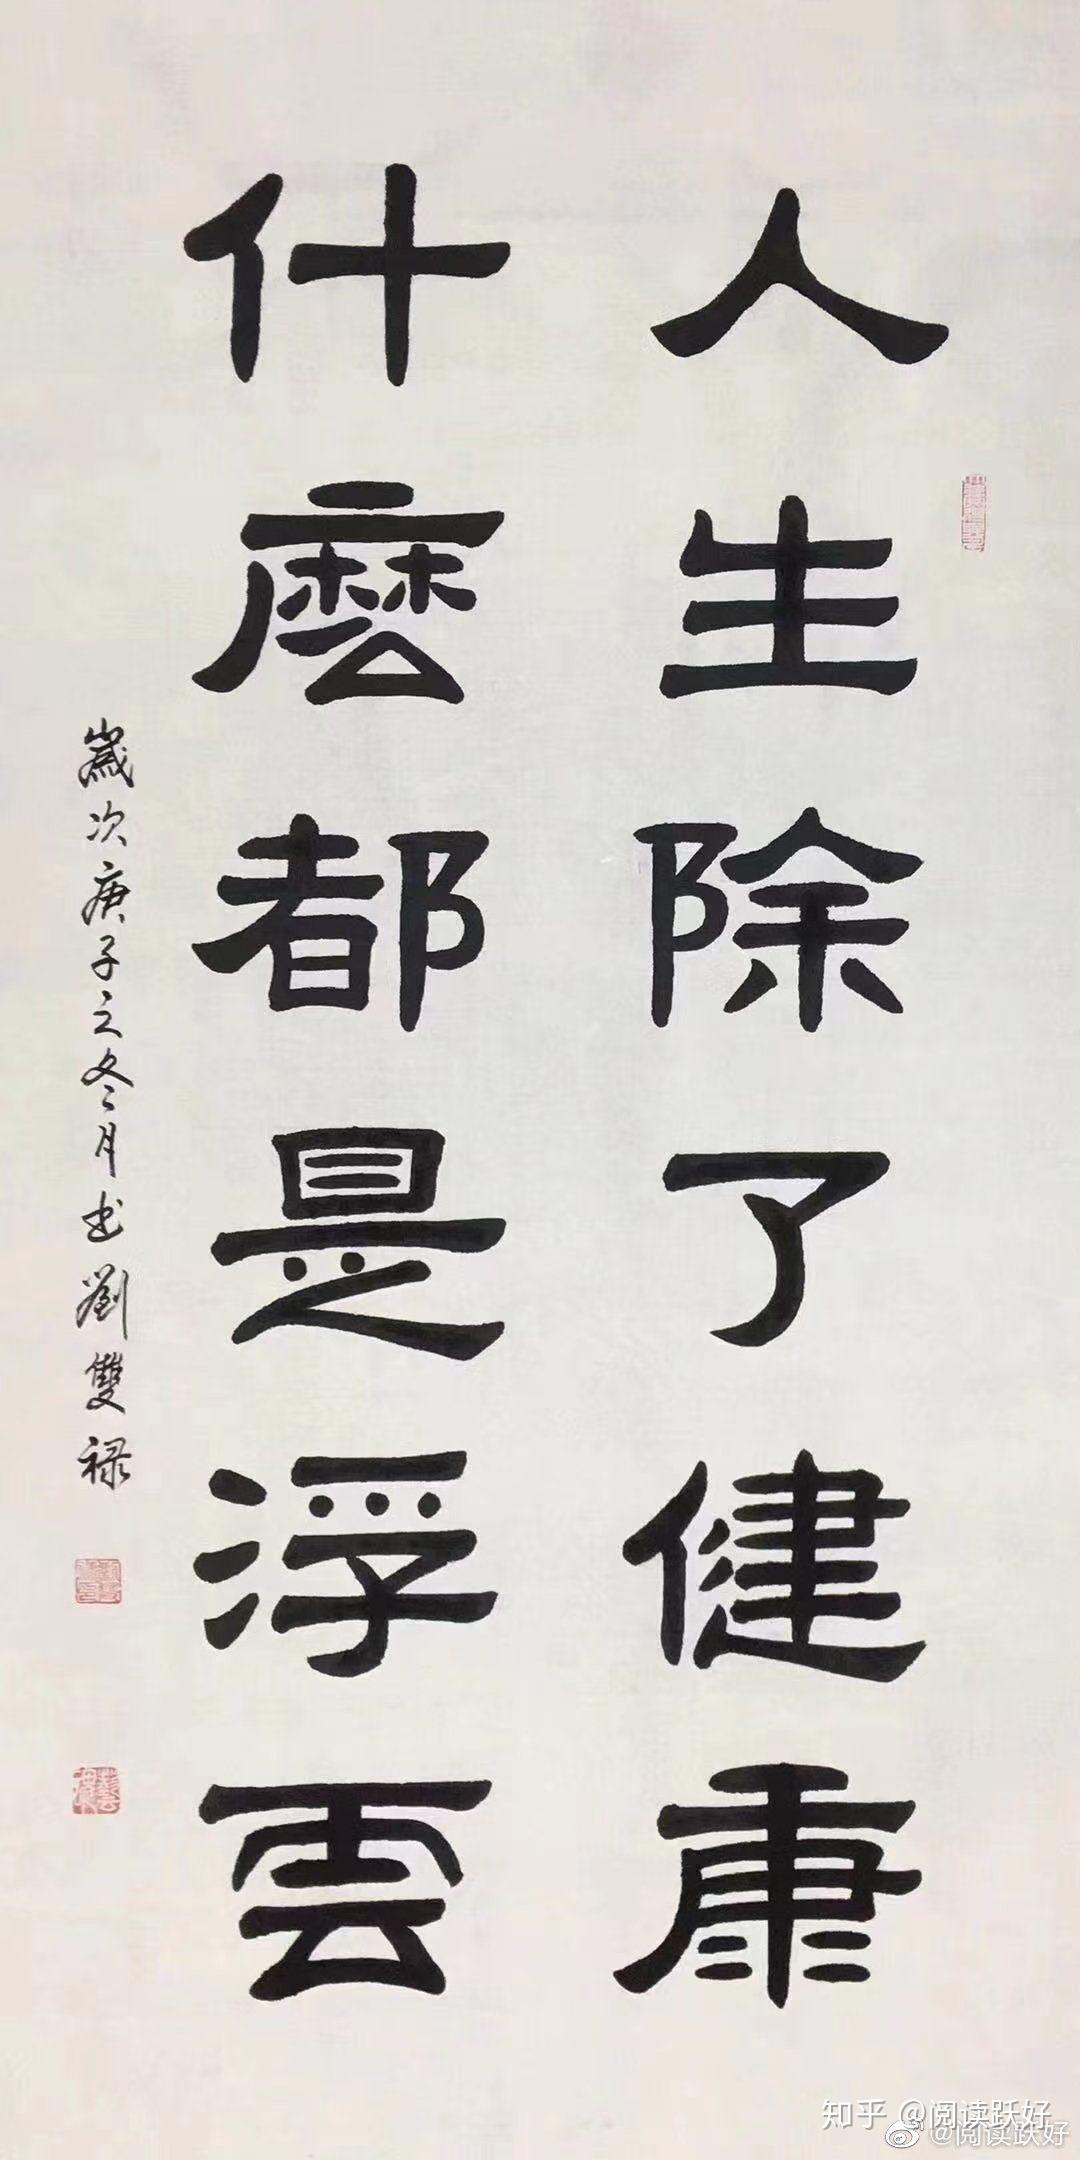 人生除了健康
什麽都是浮雲
歲次庚子之冬月书劉雙禄
知乎 @阅读跃好
@阅读跃好